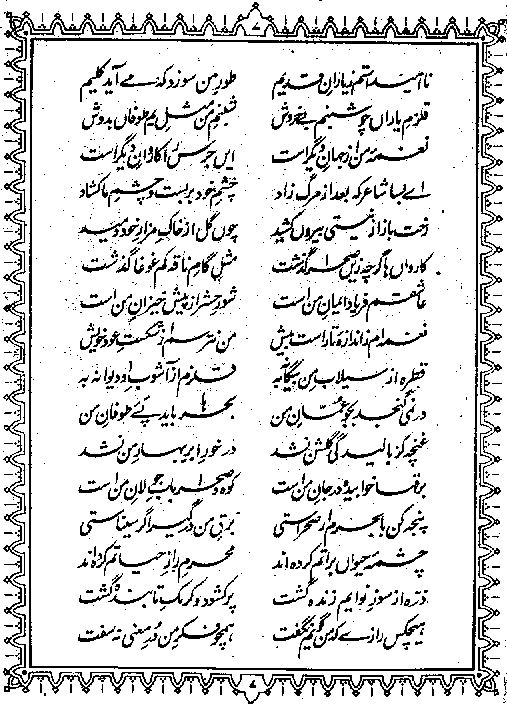 نا امید ستم ز یاران قدیم    طور من سوزد کہ مے آید کلیم
قلزم یاراں چو شبنم بے خروش    شبنم من مثل یم طوفاں بدوش
نغمۂ من از جہان دیگر است    ایں جرس را کاروان دیگر است
اے بسا شاعر کہ بعد از مرگ زاد    چشم خود بر بست و چشم ما کشاد
رخت باز از نیستی بیروں کشید    چوں گل از خاک مزار خود دمید
کارواں ہا گرچہ زیں صحرا گذشت    مثل گام ناقہ کم غوغا گذشت
عاشقم فریاد ایمان من است    شور حشر از پیش خیزان من است
نغمہ ام ز اندازۂ تار است بیش    من نترسم از شکست عود خویش
قطرہ از سیلاب من بیگانہ بہ    قلزم از آشوب او دیوانہ بہ
در نمی گنجد بجو عمّان من    بحر ہا باید پئے طوفان من
غنچہ کز بالیدگی گلشن نشد    در خور ابر بہار من نشد
برقہا خوابیدہ در جان من است    کوہ و صحرا باب جولان من است
پنجہ کن با بحرم ار صحراستی    برق من در گیر اگر سیناستی
چشمۂ حیواں براتم کردہ اند    محرم راز حیاتم کردہ اند
ذرّہ از سوز نوایم زندہ گشت    پر کشود و کرمک تابندہ گشت
ہیچکس رازے کہ من گویم نگفت    ہمچو فکر من دُر معنی نہ سفت